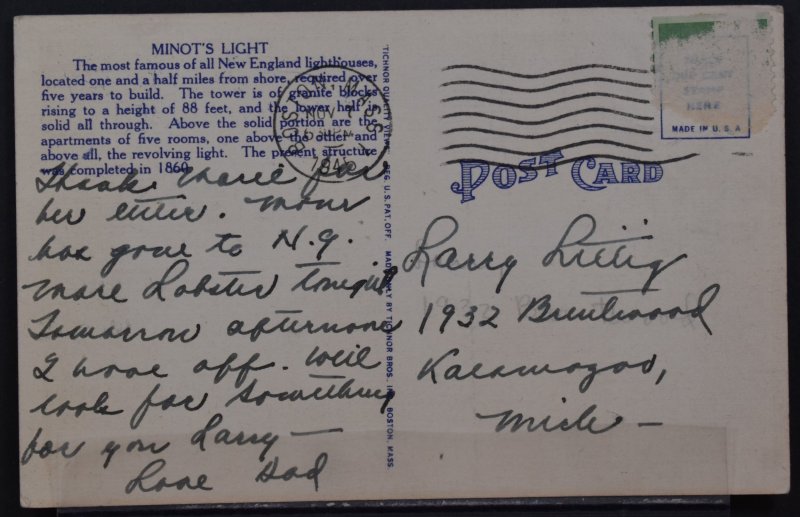 MINOT'S LIGHT
The most famous of all New England lighthouses,
located one and a half miles from shore, required over
five years to build. The tower is of granite blocks
rising to a height of 88 feet, and the lower half is
solid all through. Above the solid portion are the
apartments of five rooms, one above the other and
above all, the revolving light. The present structure
was completed in 1860.
Thank Marie for
her letter. Mour
has gone to N.Y.
More Lobster tonight
Tomorrow afternoon
I have off. Will
look for something
for you Larry —
Love Dad
TICHNOR QUALITY VIEWS, REG. U. S. PAT. OFF. MADE ONLY BY TICHNOR BROS. BOSTON, MASS.
BOSTON MASS
NOV
PM
194
POST CARD
STAMP
HERE
MADE IN U.S.A
Larry Littig
1932 Brentwood
Kalamazoo,
Mich —